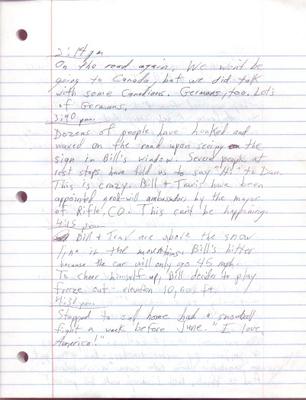 2:14 pm
On the road again. We won't be
going to Canada, but we did talk
with some Canadians. Germans, too. Lots
of Germans.
3:40 pm.
Dozens of people have honked and
waved on the road upon seeing the
sign in Bill's window. Several people at
rest stops have told us to say "Hi" to Dave.
This is crazy. Bill & Travis have been
appointed good-will ambassadors by the mayor
of Rifle, CO. This can't be happening.
4:15 pm
Bill & Trav are above the snow
line in the mountains. Bill's bitter
because the car will only go 45 mph.
To cheer himself up, Bill decides to play
freeze out - elevation 10,600 ft.
4:51 pm.
Stopped to eat, home had a snowball
fight a week before June. "I love
America!"